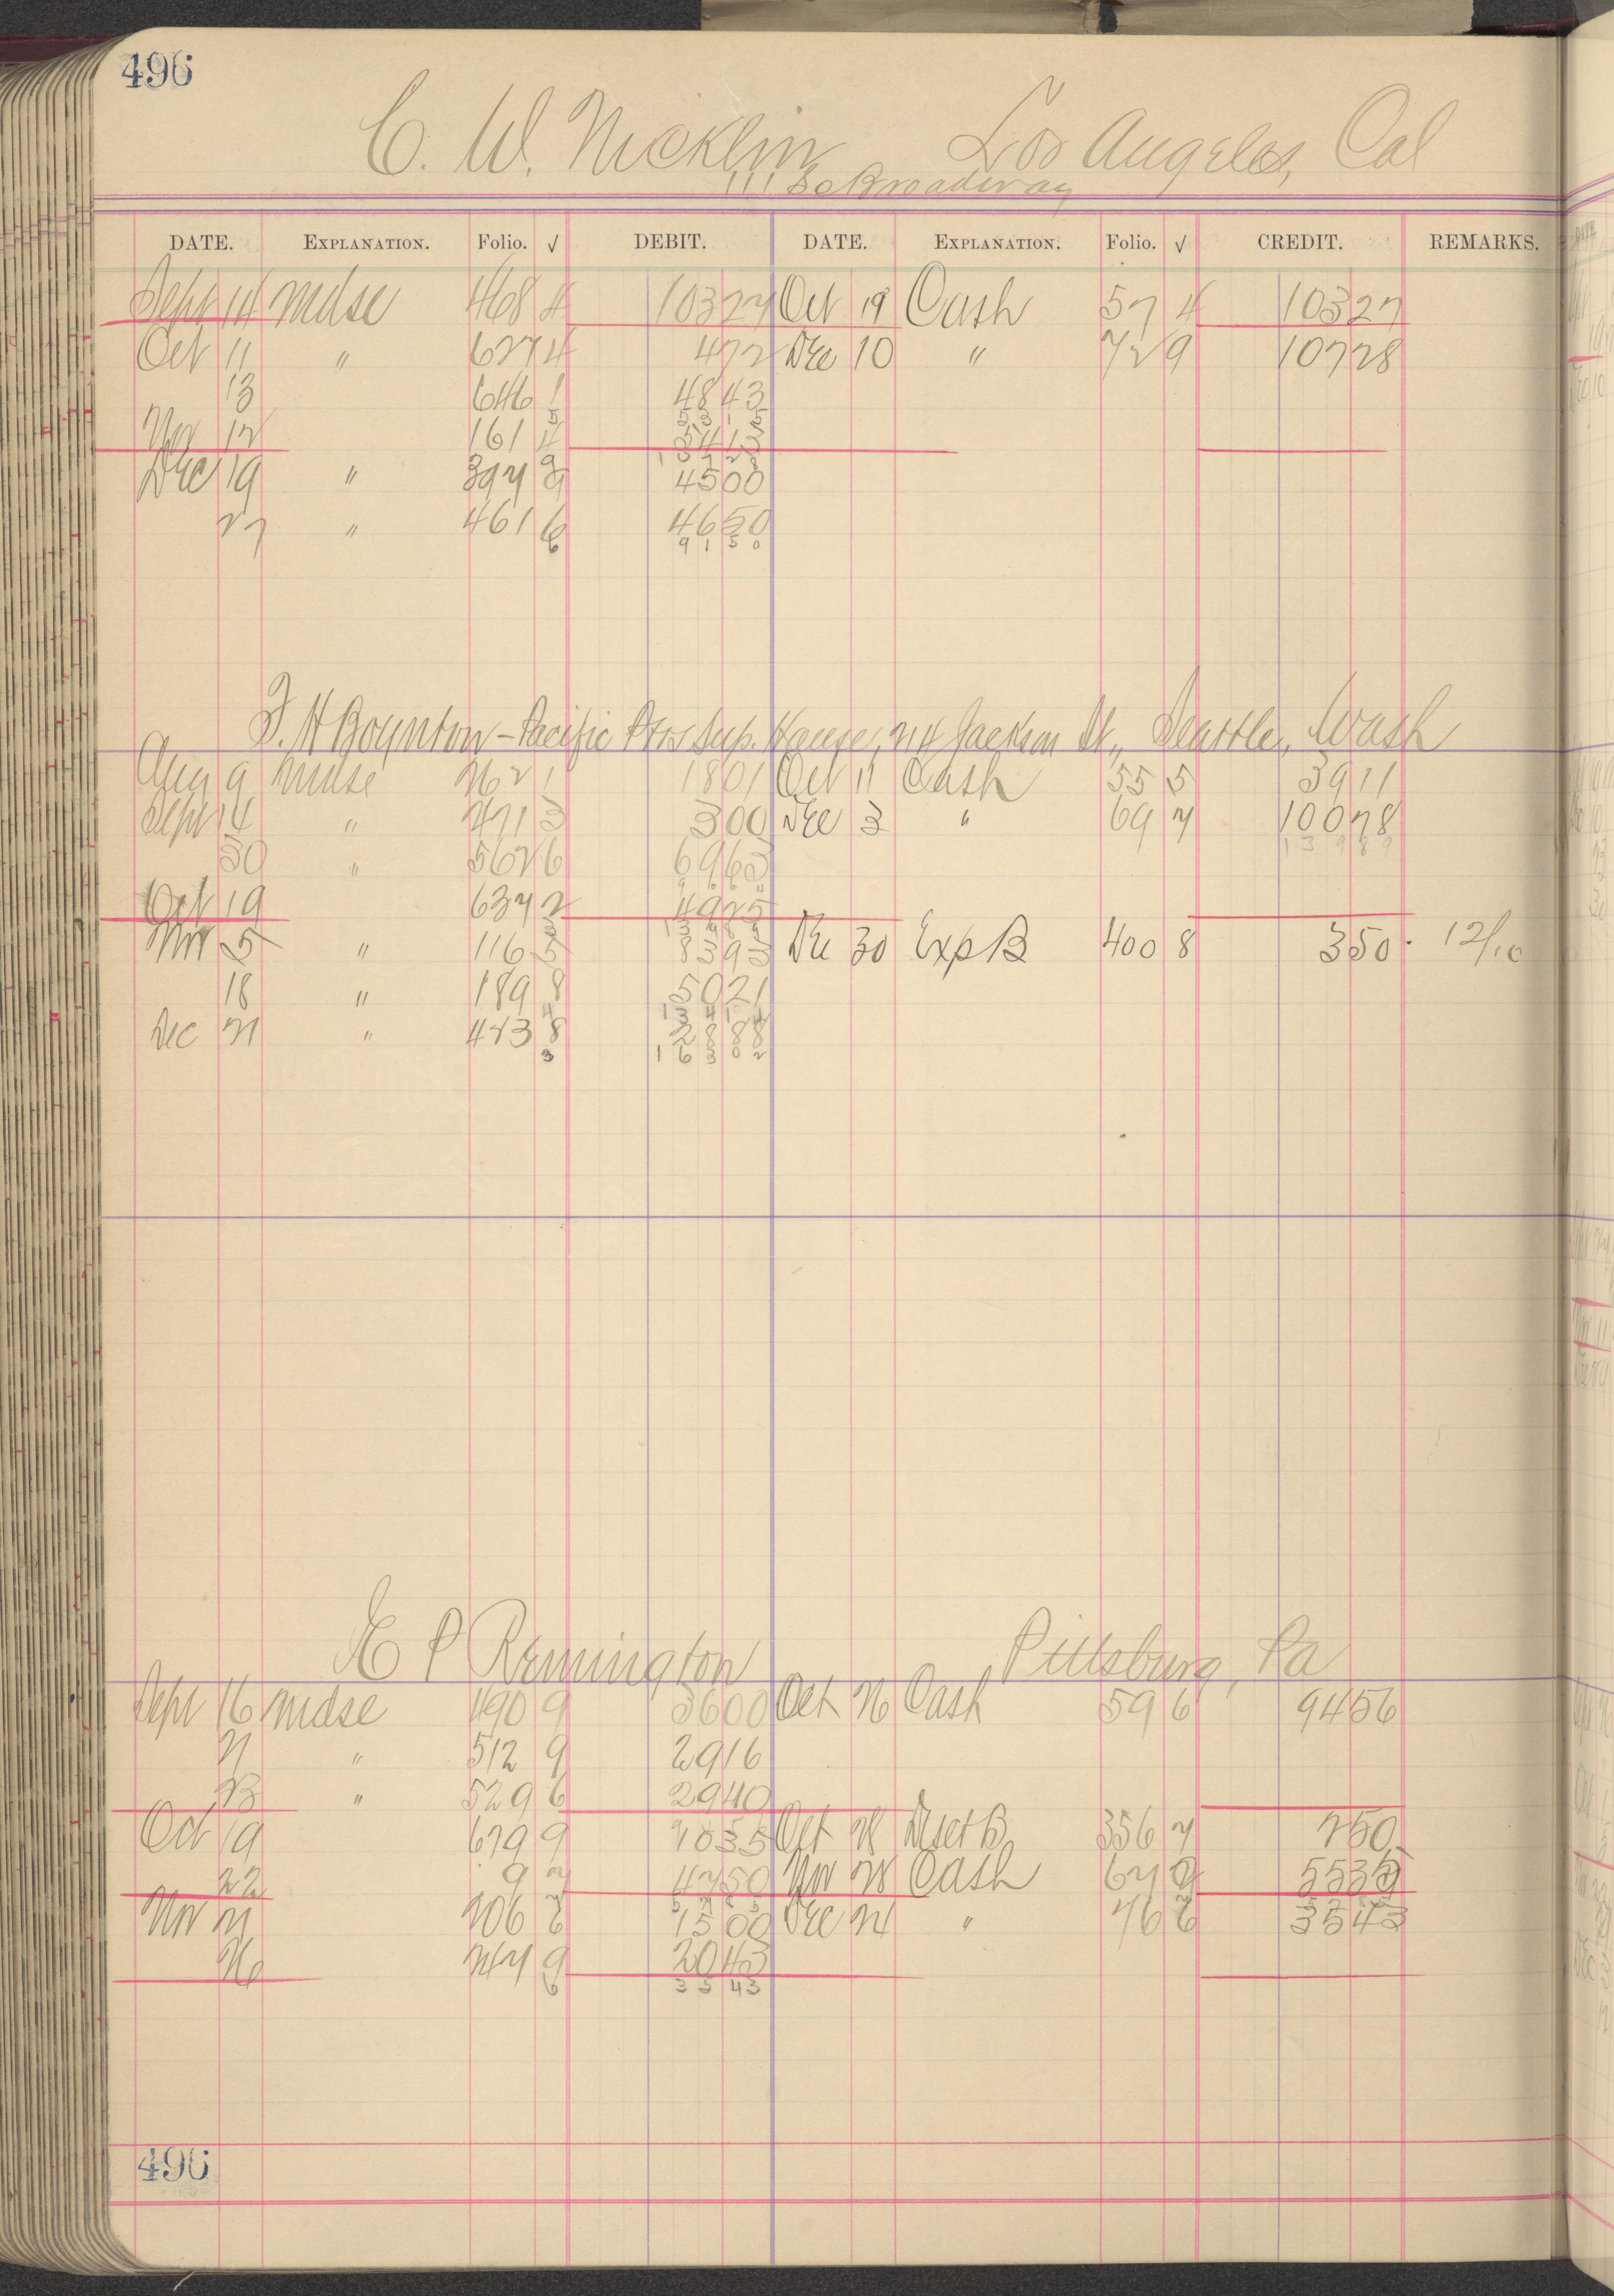 496
C. W. Nicklin Los Angeles, Cal
111 So Broadway
DATE. EXPLANATION. Folio. √ DEBIT. DATE. EXPLANATION. Folio. √ CREDIT. REMARKS.
Sept 14 Mdse 468 4 103 27 Oct 19 Cash 57 4 103 27
Oct 11 " 627 4 4 72 Dec 10 " 72 9 107 28
13 646 1 48 43
5 53 15
Nov 12 161 4 54 13
9 107 28
Dec 19 " 397 9 45 00
27 " 461 6 46 50
6 91 50
F. H Boynton - Pacific Pho Sup. House, 214 Jackson St., Seattle, Wash
Aug 9 Mdse 262 1 18 01 Oct 11 Cash 55 5 39 11
Sept 14 " 471 3 3 00 Dec 3 " 69 7 100 78
139 89
30 " 562 6 69 63
Oct 19 637 2 49 25
139 89
Nov 5 " 116 5 83 93 Dec 30 Exp B 400 8 3 50 12/10
18 " 189 8 50 21
4 134 14
Dec 21 " 423 8 28 88
3 163 02
E P Remington Pittsburg, Pa
Sept 16 Mdse 490 9 36 00 Oct 26 Cash 59 6 94 56
21 " 512 9 29 16
23 " 529 6 29 40
Oct 19 679 9 10 35 Oct 28 B 356 7 2 50
22 9 7 47 50 Nov 28 Cash 67 55 35
57 85
Nov 21 206 15 00 Dec 24 " 76 6 35 43
26 247 9 20 43
6 35 43
496